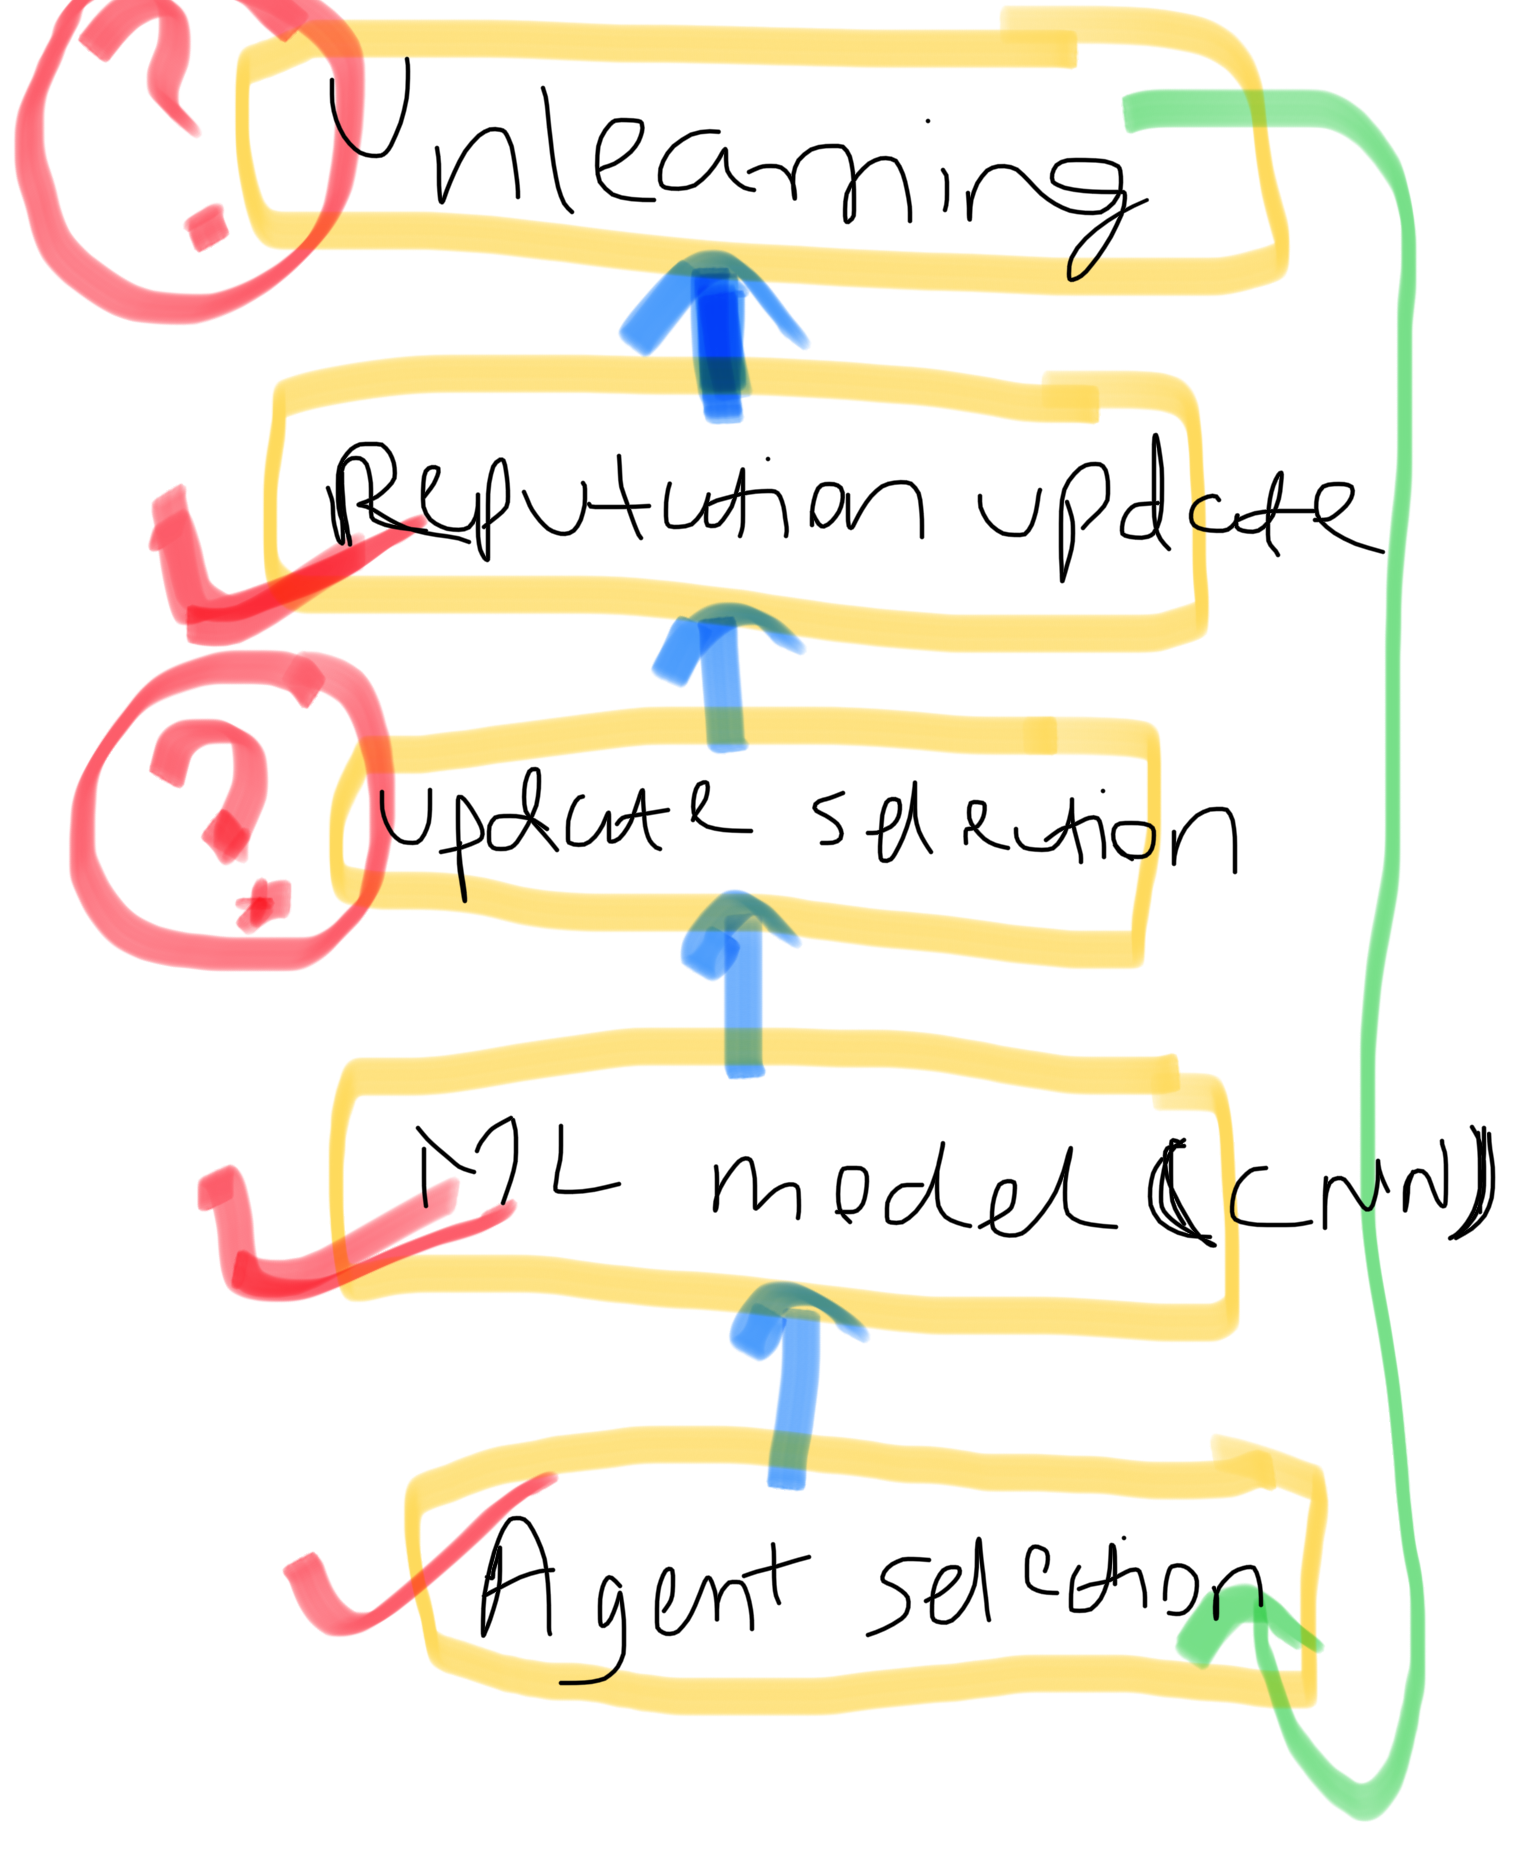 ?
Unlearning
Reputation update
?
Update selection
ML model (CNN)
Agent selection